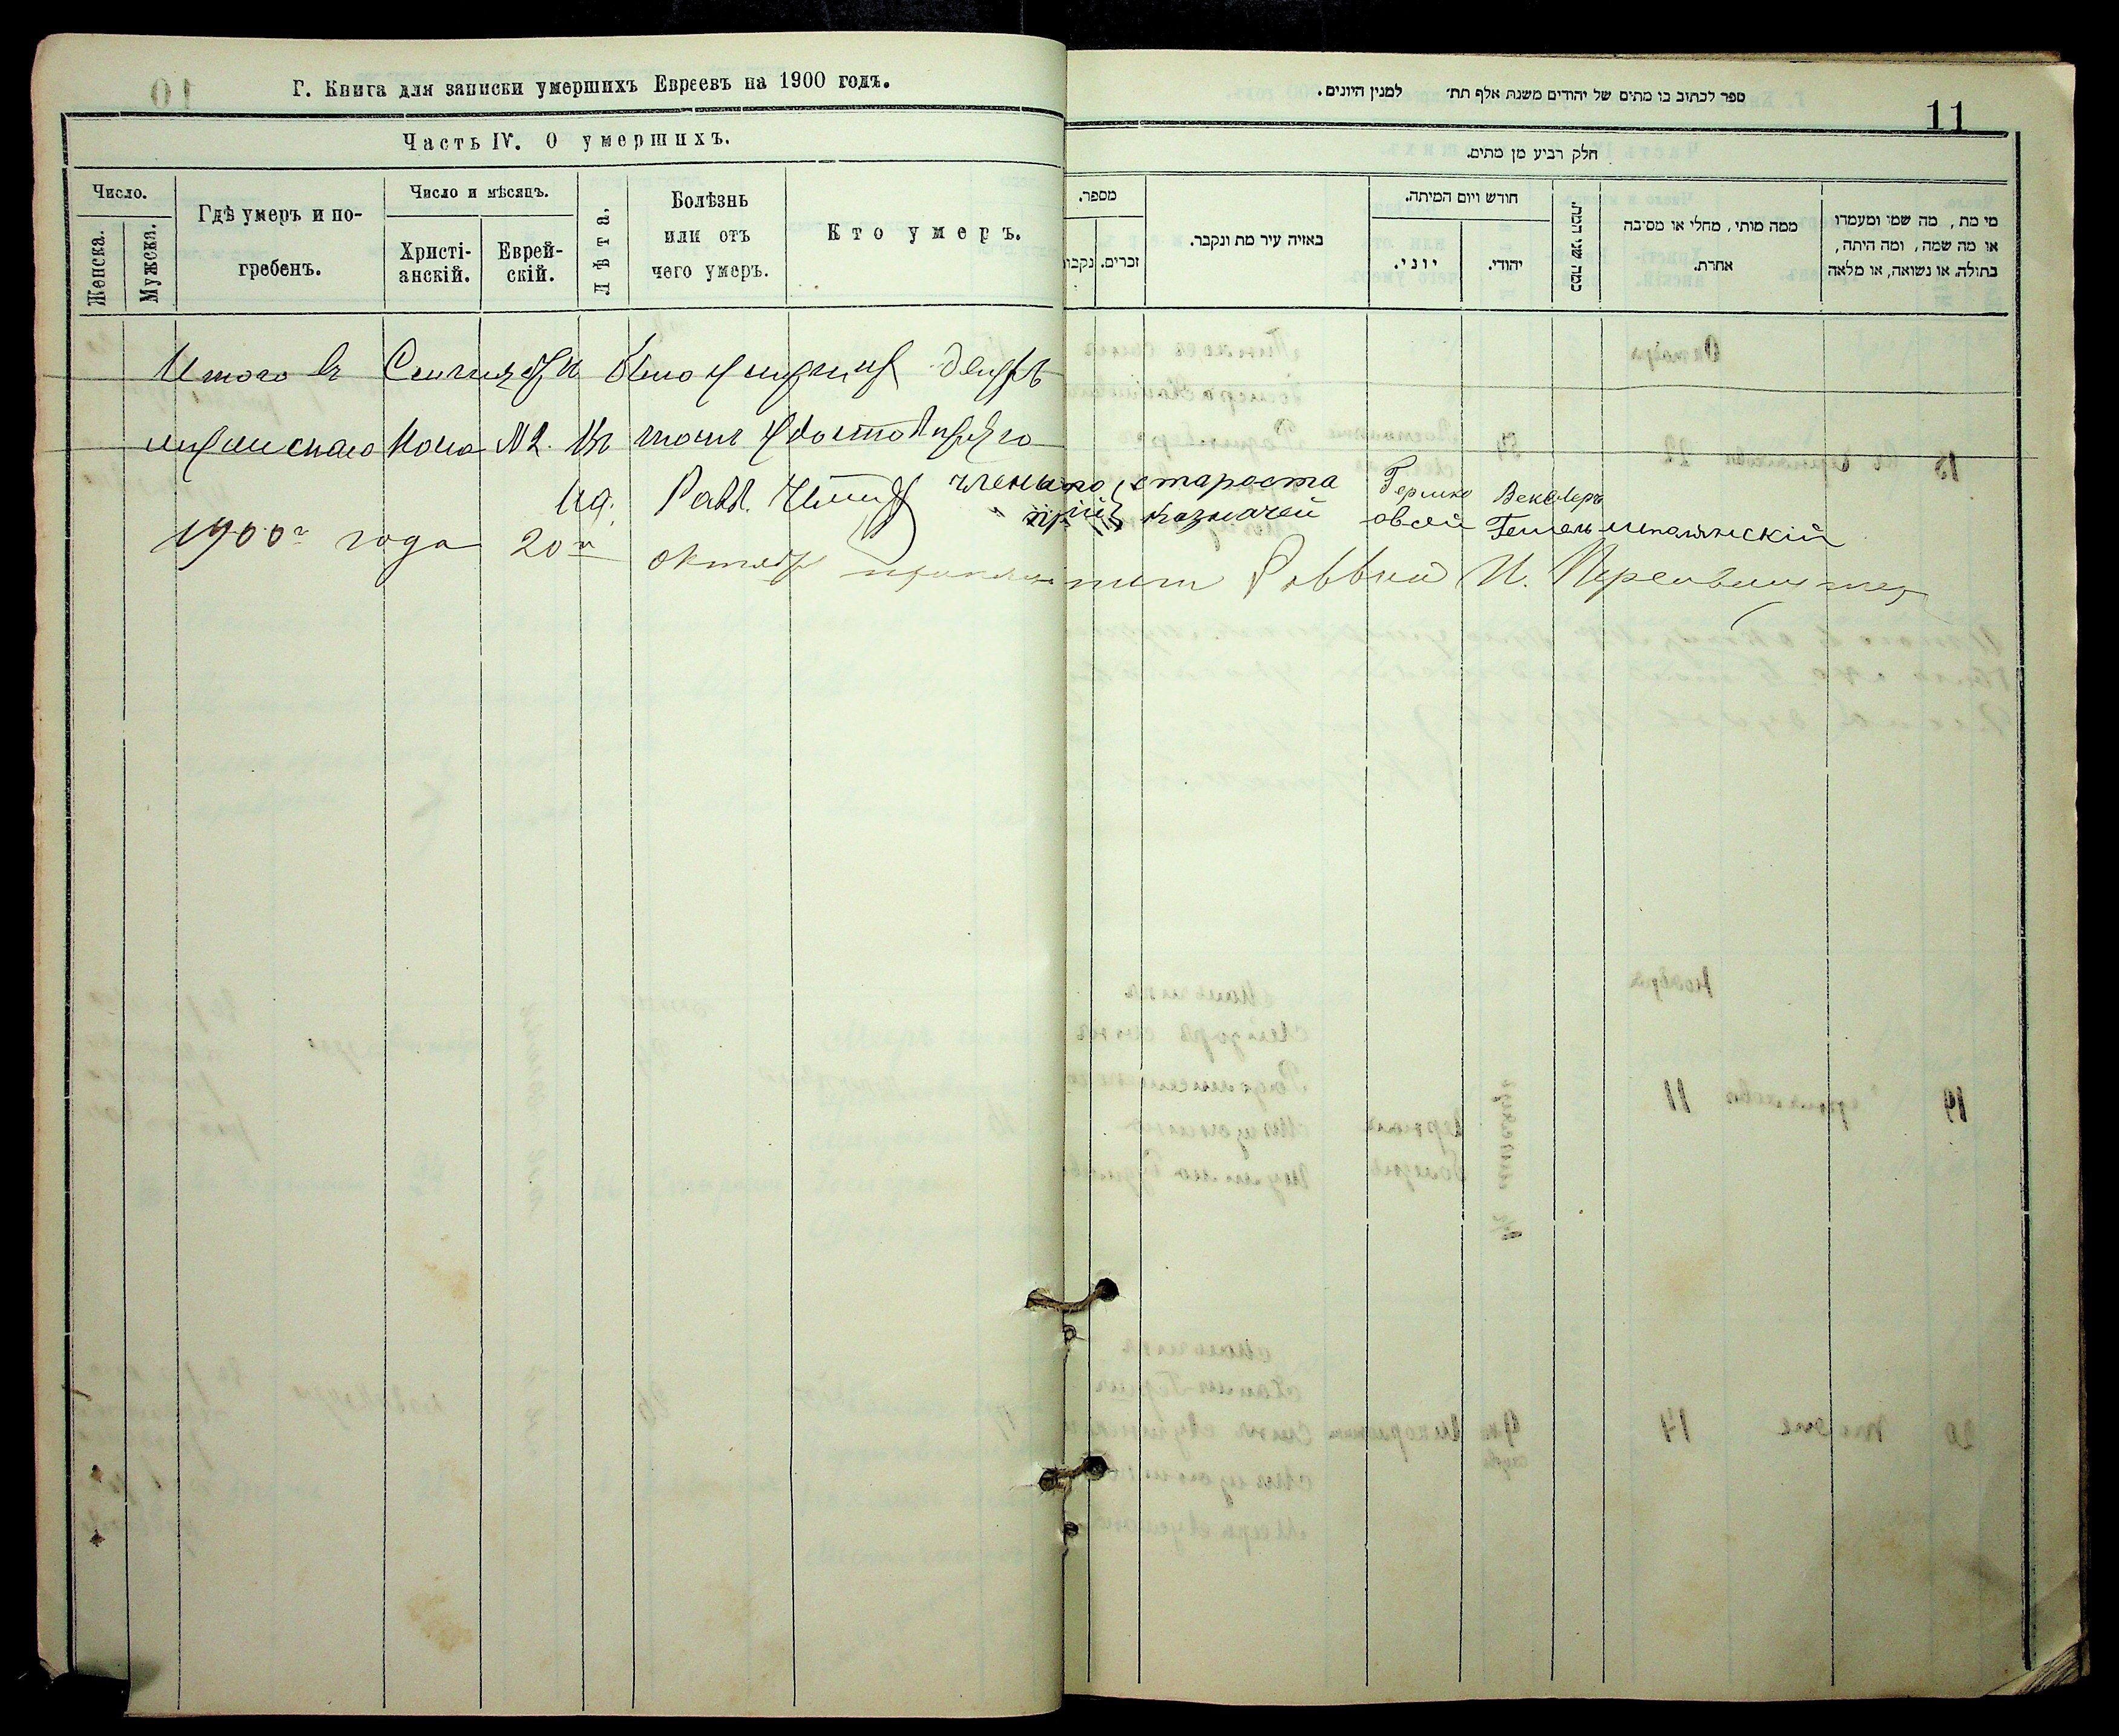 Г. Книга для записки умершихъ Евреевъ на 1900 годъ.
Часть IV. О умершихъ.
Число.
Женска.
Мужска.
Гдѣ умеръ и погребенъ.
Число и мѣсяцъ.
Христіанскій.
Еврейскій.
Лѣта.
Болѣзнь
или отъ
чего умеръ.
Кто умеръ.
ספר לכתוב בו מתים של יהודים משנת אלף תת׳ למנין היונים.
11
חלק רביע מן מתים.
מספר.
נקבות
זכרים.
באיזה עיר מת ונקבר.
חודש ויום המיתה.
יוני.
יהודי.
כמה שני המת.
ממה מותו, מחלי או מסיבה
אחרת.
מי מת, מה שמו ומעמדו
או מה שמה, ומה היתה,
בתולה, או נשואה, או מלאה
Итого въ Сентябрѣ было умершихъ двухъ
мужскаго пола № 2. Въ томъ удостовѣряю
Ид. Равв. члены староста Гершко Векслеръ
казначей овсей Гешель Шполянскій
1900г года 20го октября Раввин И.